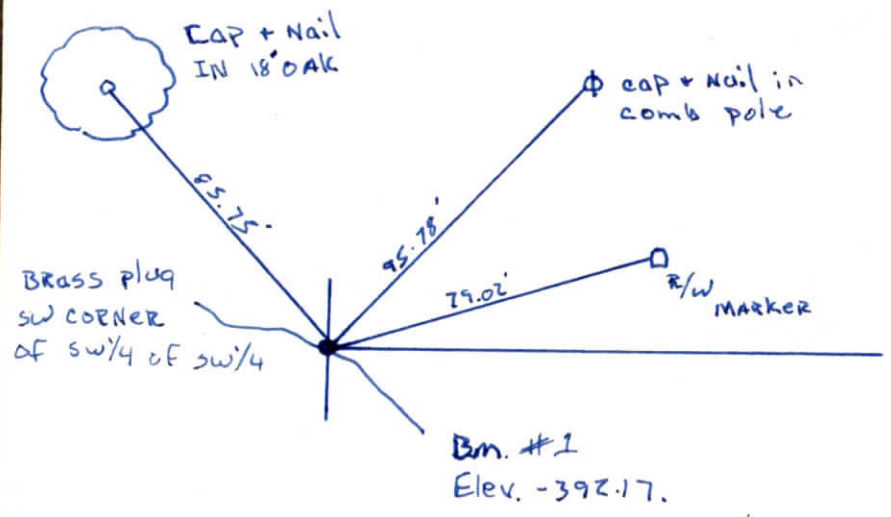 Cap + Nail
IN 18" OAK
cap + Nail in
comb pole
85.75'
95.78'
79.02'
R/W
MARKER
BRASS plug
SW CORNER
of SW 1/4 of SW 1/4
Bm. #1
Elev. -392.17.